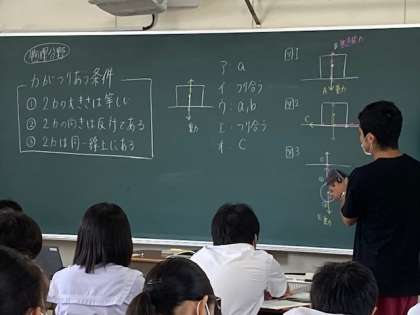 物理分野
力がつりあう条件
① 2力の大きさは等しい
② 2力の向きは反対である
③ 2力は同一線上にある
重力
ア a
イ つり合う
ウ a,b
エ つり合う
オ C
図1
B
A
重力
図2
C
図3
重力